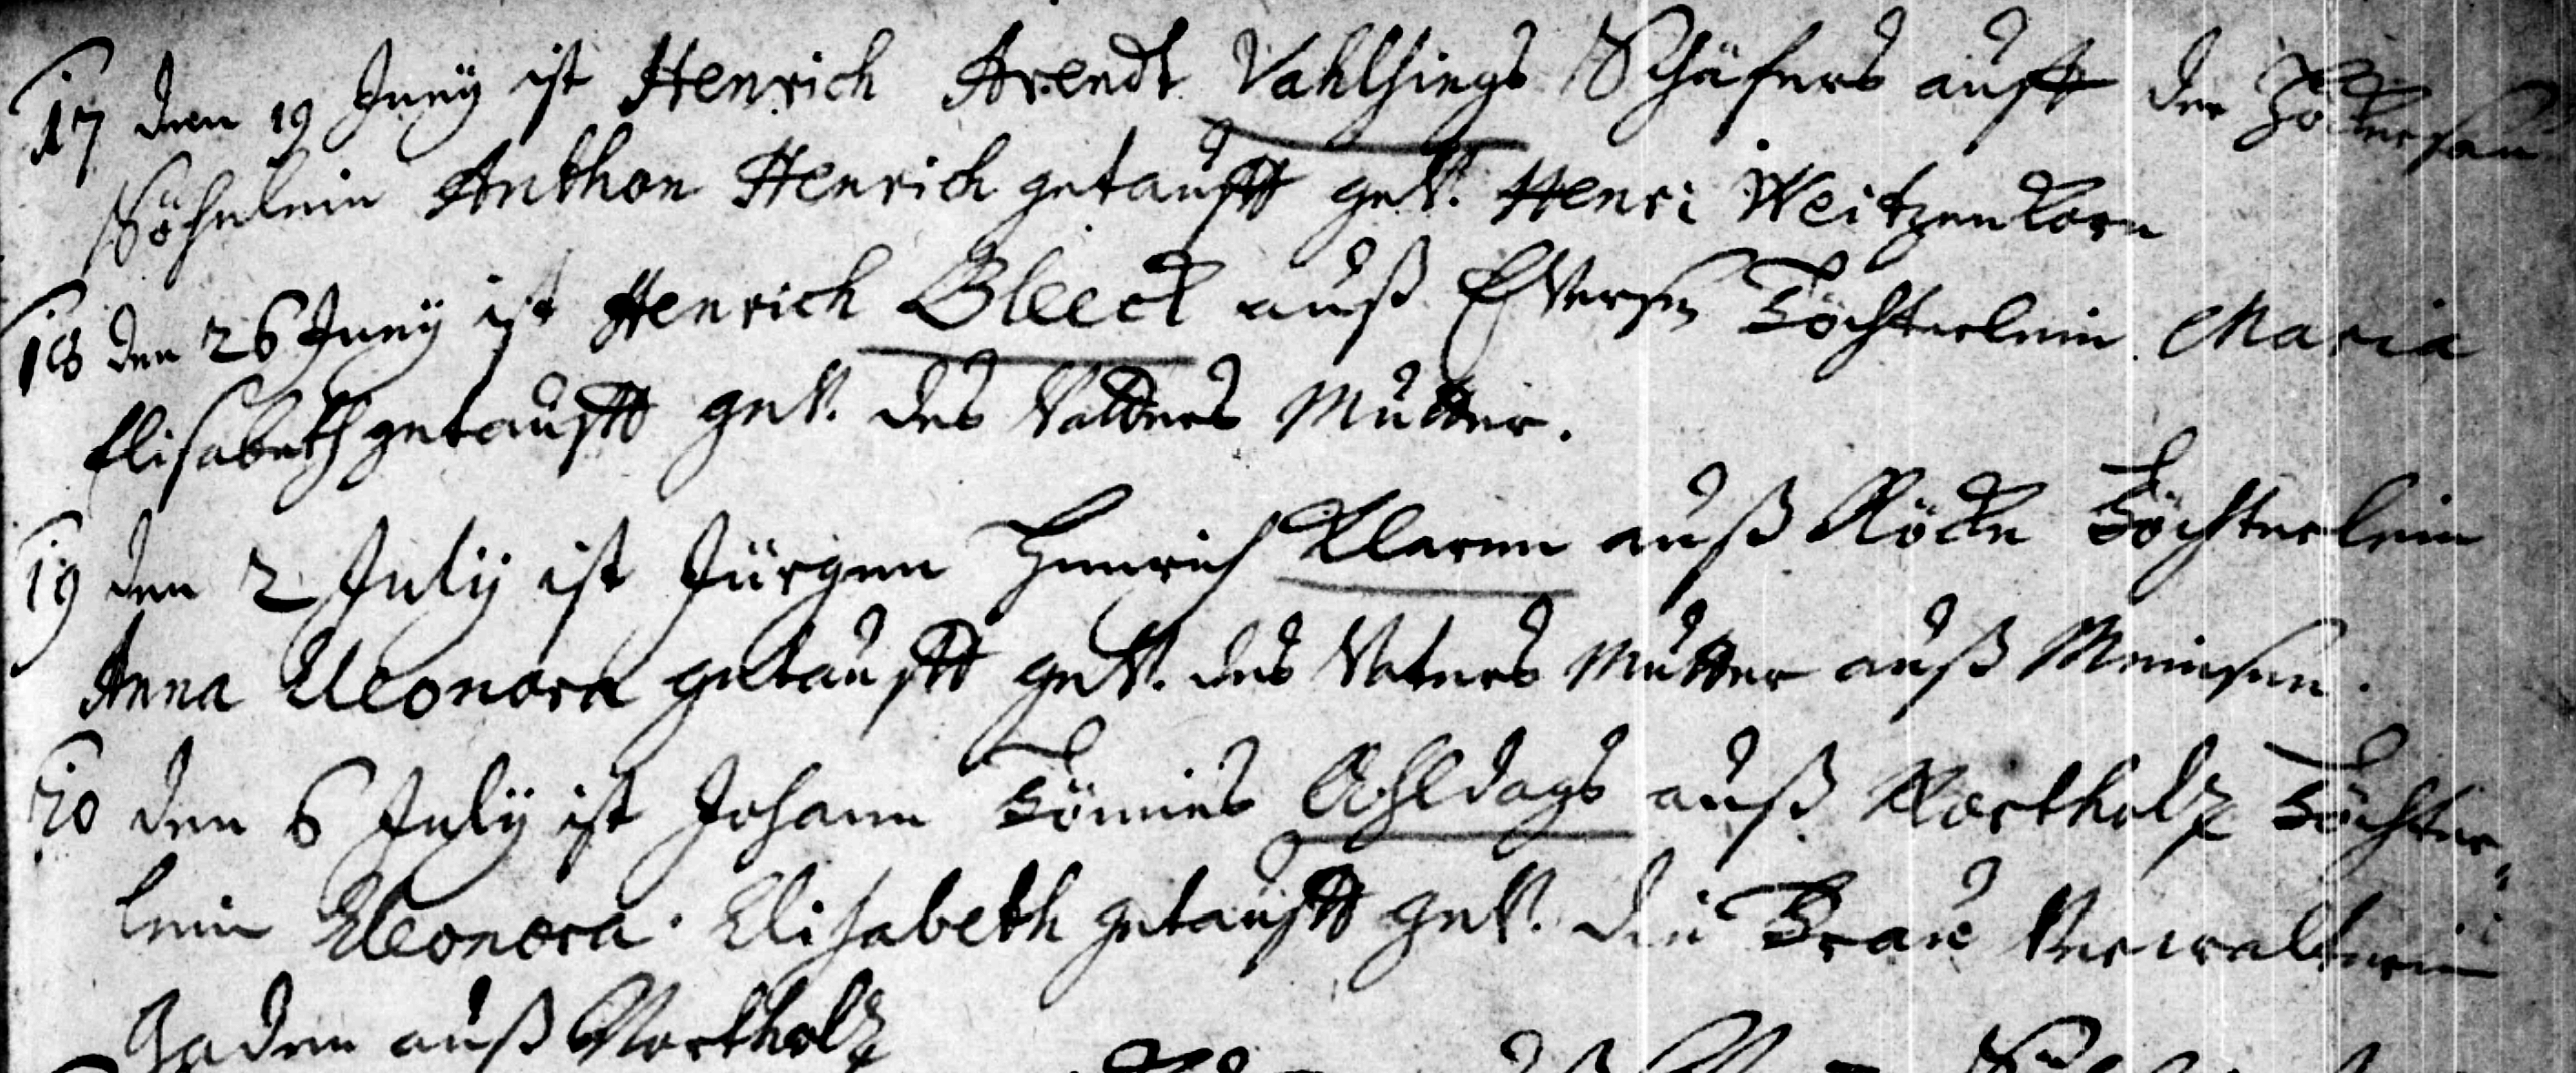 17 den 19 Junij ist Henrich Arendt Vahlsings Schäfers auff der
Söhnlein Anthon Henrich getaufft gev. Henri Weitzenkorn
18 den 26 Junij ist Henrich Bleeck auß Evesen Töchterlein Maria
Elisabeth getaufft gev. des Vatters Mutter.
19 den 2 Julij ist Jürgen Henrich Klaren auß Röcke Töchterlein
Anna Eleonora getaufft gev. des Vaters Mutter auß Meinsen.
20 den 6 Julij ist Johann Tönnies Ahldags auß Northoltz Töchter,
lein Eleonora Elisabeth getaufft gev. die Frau Verwalterin
Gaden auß Northoltz